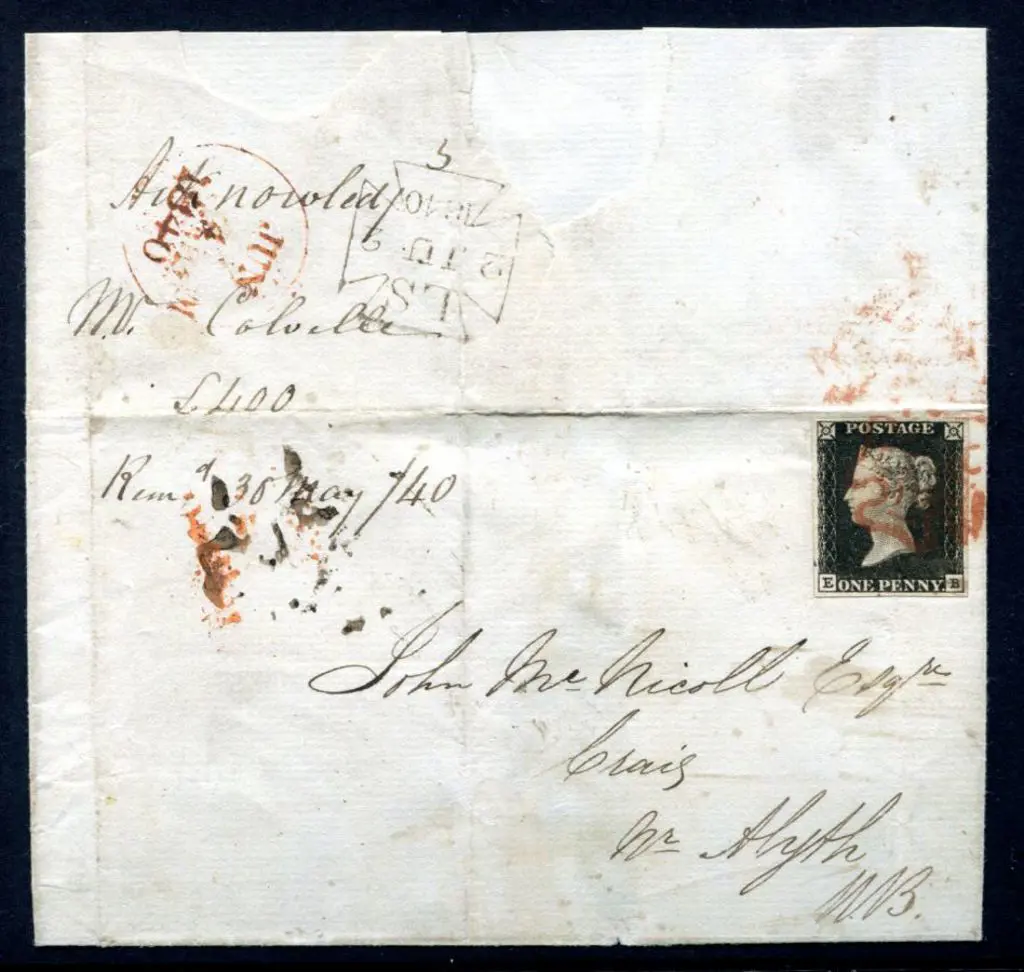 Acknowledg
Mr. Colville
£400
Rem d 30 May /40
1840
JUN
2 JU 2
1840
POSTAGE
E ONE PENNY. B
John Mc Nicoll Esqre
Craig
Nr Alyth
N.B.